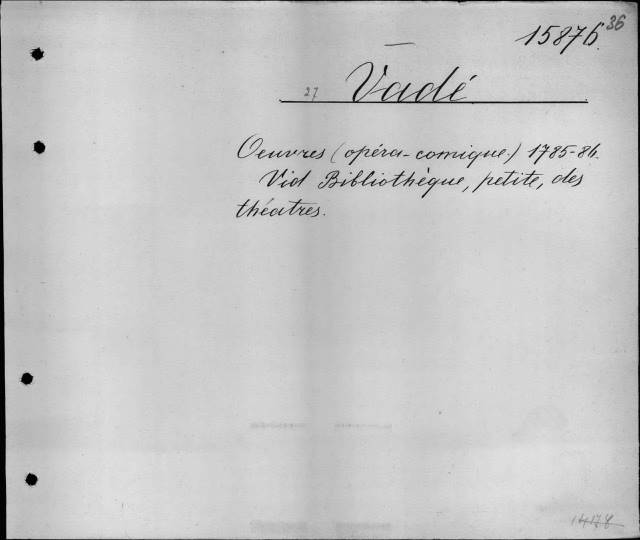 36
15876.
27 Vadé.
Oeuvres (opéra-comique.) 1785-86.
Vid Bibliothèque, petite, des
théatres.
14178